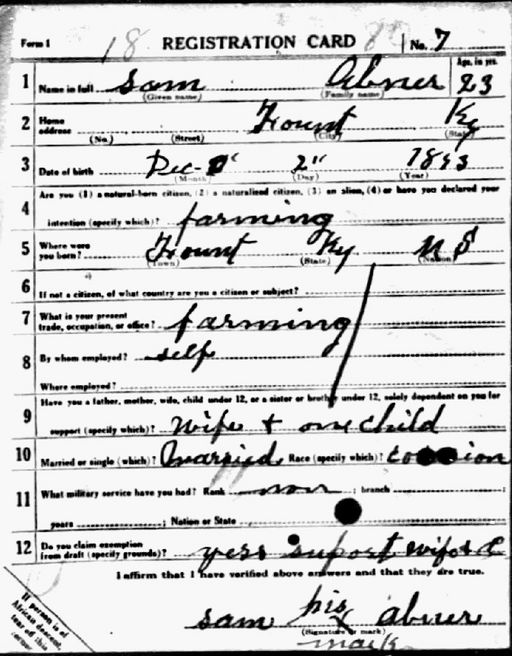 Form 1 18 REGISTRATION CARD No. 7
1 Name in full Sam Abner Age, in yrs. 23
(Given name) (Family name)
2 Home address Fount Ky
(No.) (Street) (City) (State)
3 Date of birth Dec- 2" 1893
(Month) (Day) (Year)
Are you (1) a natural-born citizen, (2) a naturalized citizen, (3) an alien, (4) or have you declared your
4 intention (specify which)? farming
5 Where were you born? Fount Ky U S
(Town) (State) (Nation)
6 If not a citizen, of what country are you a citizen or subject?
7 What is your present trade, occupation, or office? farming
8 By whom employed? self
Where employed?
Have you a father, mother, wife, child under 12, or a sister or brother under 12, solely dependent on you for
9 support (specify which)? Wife + one child
10 Married or single (which)? Married Race (specify which)?
11 What military service have you had? Rank non ; branch ;
years ; Nation or State
12 Do you claim exemption from draft (specify grounds)? yess support wife &
I affirm that I have verified above answers and that they are true.
If person is of
African descent,
tear off this
corner.
sam his X abner
(Signature or mark)
mark